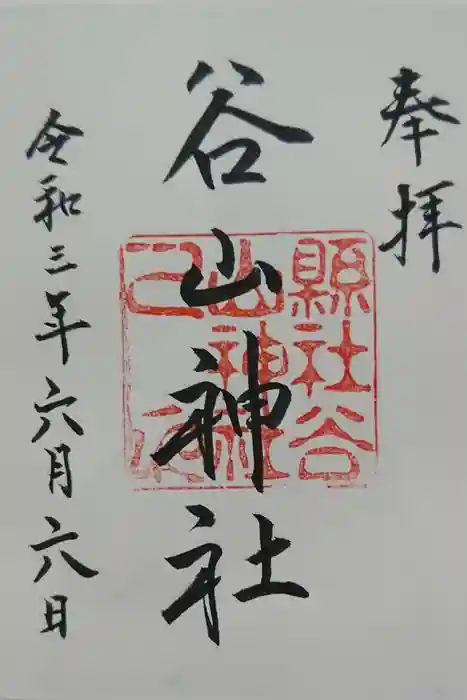 奉拝
谷山神社
縣社谷
山神社
之印
令和三年六月六日